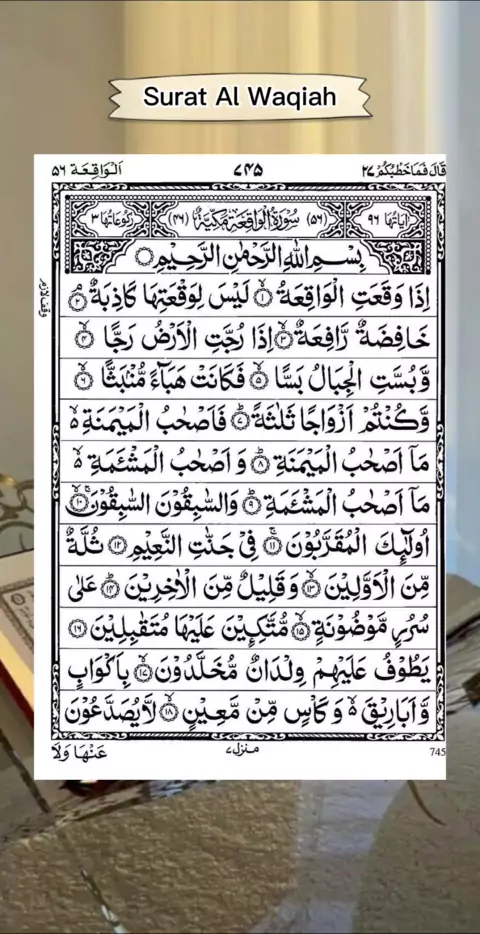 Surat Al Waqiah
اَلْوَاقِعَة ٥٦ ٧٤٥ قَالَ فَمَا خَطْبُكُمْ ٢٧
اٰيَاتُهَا ٩٦ (٥٦) سُوْرَةُ الْوَاقِعَةِ مَكِّيَّةٌ (٤٦) رُكُوْعَاتُهَا ٣
بِسْمِ اللّٰهِ الرَّحْمٰنِ الرَّحِيْمِ
اِذَا وَقَعَتِ الْوَاقِعَةُ ۙ‏﴿١﴾ لَيْسَ لِوَقْعَتِهَا كَاذِبَةٌ ۘ‏﴿٢﴾
وقف لازم
خَافِضَةٌ رَّافِعَةٌ ۙ‏﴿٣﴾ اِذَا رُجَّتِ الْاَرْضُ رَجًّا ۙ‏﴿٤﴾
وَّبُسَّتِ الْجِبَالُ بَسًّا ۙ‏﴿٥﴾ فَكَانَتْ هَبَآءً مُّنْۢبَثًّا ۙ‏﴿٦﴾
وَّكُنْتُمْ اَزْوَاجًا ثَلٰثَةً ؕ‏﴿٧﴾ فَاَصْحٰبُ الْمَيْمَنَةِ ۙ۬
مَاۤ اَصْحٰبُ الْمَيْمَنَةِ ؕ‏﴿٨﴾ وَ اَصْحٰبُ الْمَشْـَٔمَةِ ۙ۬
مَاۤ اَصْحٰبُ الْمَشْـَٔمَةِ ؕ‏﴿٩﴾ وَالسّٰبِقُوْنَ السّٰبِقُوْنَ ۚۙ‏﴿١٠﴾
اُولٰٓئِكَ الْمُقَرَّبُوْنَ ۚ‏﴿١١﴾ فِيْ جَنّٰتِ النَّعِيْمِ ﴿١٢﴾ ثُلَّةٌ
مِّنَ الْاَوَّلِيْنَ ۙ‏﴿١٣﴾ وَ قَلِيْلٌ مِّنَ الْاٰخِرِيْنَ ؕ‏﴿١٤﴾ عَلٰى
سُرُرٍ مَّوْضُوْنَةٍ ۙ‏﴿١٥﴾ مُّتَّكِـِٕيْنَ عَلَيْهَا مُتَقٰبِلِيْنَ ﴿١٦﴾
يَطُوْفُ عَلَيْهِمْ وِلْدَانٌ مُّخَلَّدُوْنَ ۙ‏﴿١٧﴾ بِاَكْوَابٍ
وَّ اَبَارِيْقَ ۙ۬ وَ كَاْسٍ مِّنْ مَّعِيْنٍ ۙ‏﴿١٨﴾ لَّا يُصَدَّعُوْنَ
عَنْهَا وَلَا منزل ٧ 745